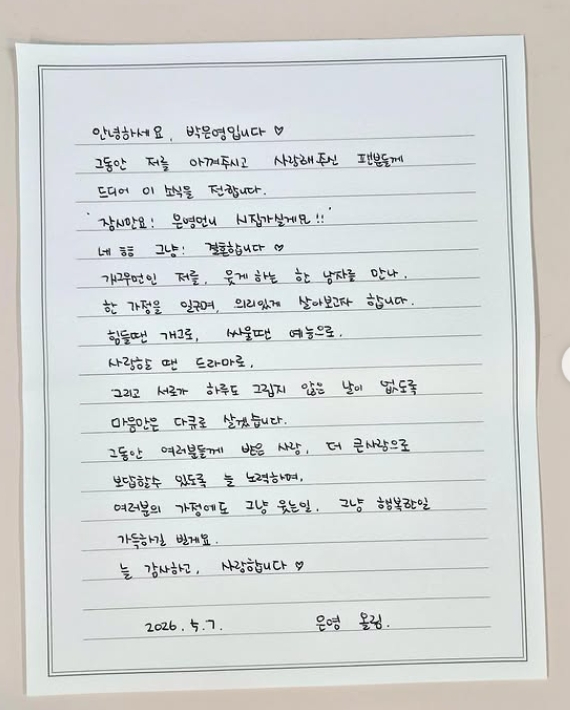 안녕하세요, 박은영입니다 ♡
그동안 저를 아껴주시고 사랑해주신 팬분들께
드디어 이 소식을 전합니다.
'잠시만요! 은영언니 시집가실게요!!'
네 ㅎㅎ 그냥! 결혼합니다 ♡
개그우먼인 저를, 웃게 하는 한 남자를 만나.
한 가정을 일구며, 의리있게 살아보고자 합니다.
힘들땐 개그로, 싸울땐 예능으로,
사랑할 땐 드라마로,
그리고 서로가 하루도 그립지 않은 날이 없도록
마음만은 다큐로 살겠습니다.
그동안 여러분들께 받은 사랑, 더 큰사랑으로
보답할수 있도록 늘 노력하며,
여러분의 가정에도 그냥 웃는일, 그냥 행복한일
가득하길 빌게요.
늘 감사하고, 사랑합니다 ♡
2026. 5. 7. 은영 올림.